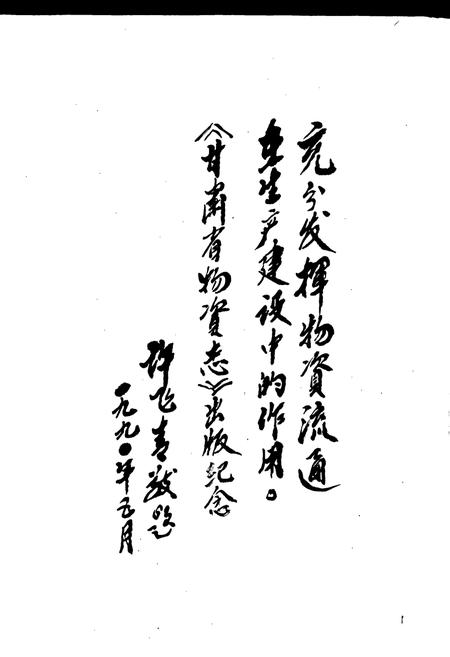 充分发揮物資流通
在生产建设中的作用。
《甘肃省物資志》出版纪念
许飞青敬题
一九九〇年五月
1